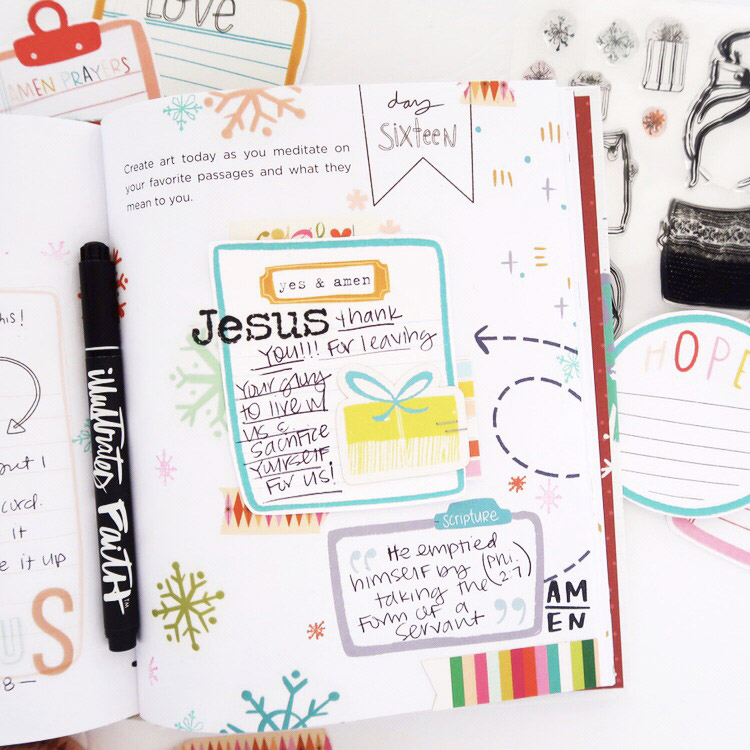 LOVE
AMEN PRAYERS
day
Sixteen
Create art today as you meditate on
your favorite passages and what they
mean to you.
yes & amen
Jesus thank
you!!! For leaving
your glory
to live in
us &
sacrifice
yourself
for us!
scripture
He emptied
himself by (Phi. 2:7)
taking the
form of a
servant
AM
EN
HOPE
illustrated Faith
his!
out I
cord.
it
e it up
US
8